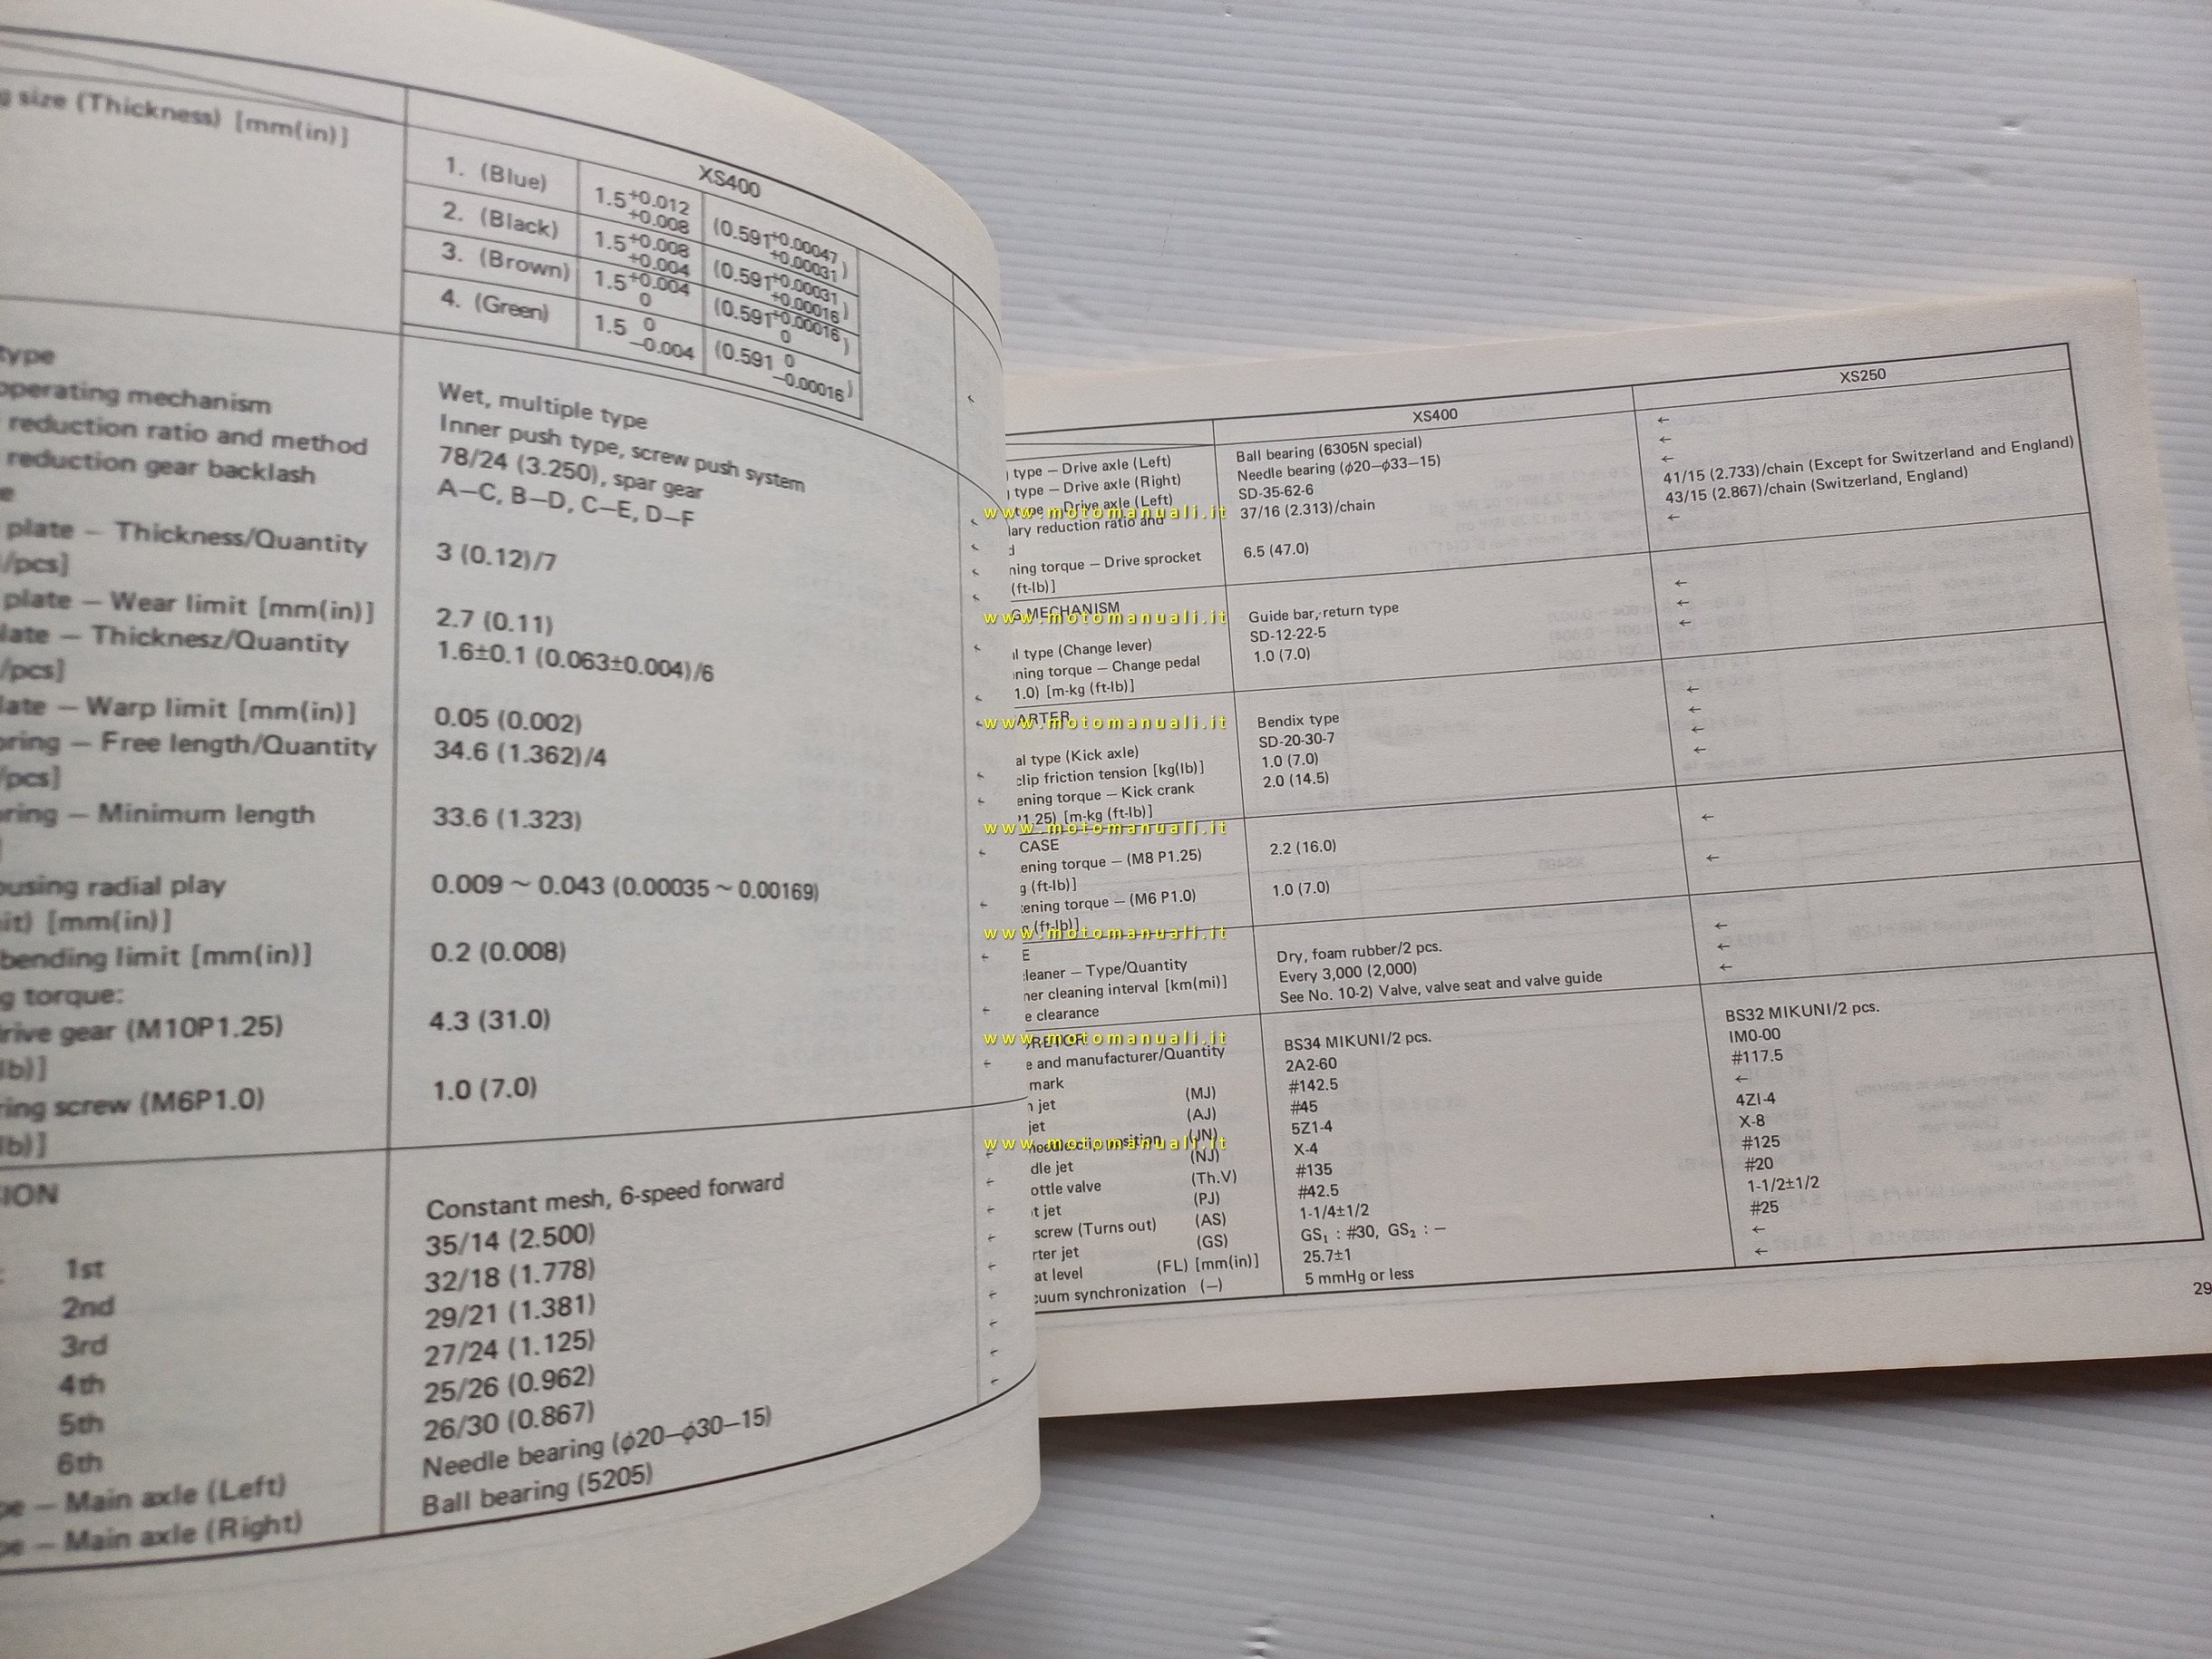 size (Thickness) [mm(in)]
XS400
1. (Blue) 1.5 +0.012 +0.008 (0.591 +0.00047 +0.00031)
2. (Black) 1.5 +0.008 +0.004 (0.591 +0.00031 +0.00016)
3. (Brown) 1.5 +0.004 0 (0.591 +0.00016 0)
4. (Green) 1.5 0 −0.004 (0.591 0 −0.00016)
type Wet, multiple type
operating mechanism Inner push type, screw push system
reduction ratio and method 78/24 (3.250), spar gear
reduction gear backlash A−C, B−D, C−E, D−F
plate − Thickness/Quantity 3 (0.12)/7
/pcs]
plate − Wear limit [mm(in)] 2.7 (0.11)
late − Thicknesz/Quantity 1.6±0.1 (0.063±0.004)/6
/pcs]
late − Warp limit [mm(in)] 0.05 (0.002)
pring − Free length/Quantity 34.6 (1.362)/4
/pcs]
pring − Minimum length 33.6 (1.323)
ousing radial play 0.009 ~ 0.043 (0.00035 ~ 0.00169)
it) [mm(in)]
bending limit [mm(in)] 0.2 (0.008)
g torque:
rive gear (M10P1.25) 4.3 (31.0)
lb)]
ring screw (M6P1.0) 1.0 (7.0)
lb)]
ION Constant mesh, 6-speed forward
1st 35/14 (2.500)
2nd 32/18 (1.778)
3rd 29/21 (1.381)
4th 27/24 (1.125)
5th 25/26 (0.962)
6th 26/30 (0.867)
pe − Main axle (Left) Needle bearing (φ20−φ30−15)
pe − Main axle (Right) Ball bearing (5205)
XS400 XS250
type − Drive axle (Left) Ball bearing (6305N special) ←
type − Drive axle (Right) Needle bearing (φ20−φ33−15) ←
type − Drive axle (Left) SD-35-62-6 ←
www.motomanuali.it
dary reduction ratio and 37/16 (2.313)/chain 41/15 (2.733)/chain (Except for Switzerland and England)
d 43/15 (2.867)/chain (Switzerland, England)
ning torque − Drive sprocket 6.5 (47.0) ←
(ft-lb)]
G MECHANISM
www.motomanuali.it
Guide bar, return type ←
al type (Change lever) SD-12-22-5 ←
ning torque − Change pedal 1.0 (7.0) ←
1.0) [m-kg (ft-lb)]
ARTER
www.motomanuali.it
Bendix type ←
al type (Kick axle) SD-20-30-7 ←
clip friction tension [kg(lb)] 1.0 (7.0) ←
ening torque − Kick crank 2.0 (14.5) ←
P1.25) [m-kg (ft-lb)]
www.motomanuali.it
CASE
ening torque − (M8 P1.25) 2.2 (16.0) ←
g (ft-lb)]
tening torque − (M6 P1.0) 1.0 (7.0) ←
g (ft-lb)]
www.motomanuali.it
E
cleaner − Type/Quantity Dry, foam rubber/2 pcs. ←
ner cleaning interval [km(mi)] Every 3,000 (2,000) ←
e clearance See No. 10-2) Valve, valve seat and valve guide ←
RETOR
www.motomanuali.it
e and manufacturer/Quantity BS34 MIKUNI/2 pcs. BS32 MIKUNI/2 pcs.
mark 2A2-60 IM0-00
n jet (MJ) #142.5 #117.5
jet (AJ) #45 ←
needle clip position (JN) 5Z1-4 4ZI-4
www.motomanuali.it
dle jet (NJ) X-4 X-8
ottle valve (Th.V) #135 #125
t jet (PJ) #42.5 #20
screw (Turns out) (AS) 1-1/4±1/2 1-1/2±1/2
rter jet (GS) GS₁ : #30, GS₂ : − #25
at level (FL) [mm(in)] 25.7±1 ←
cuum synchronization (−) 5 mmHg or less ←
29